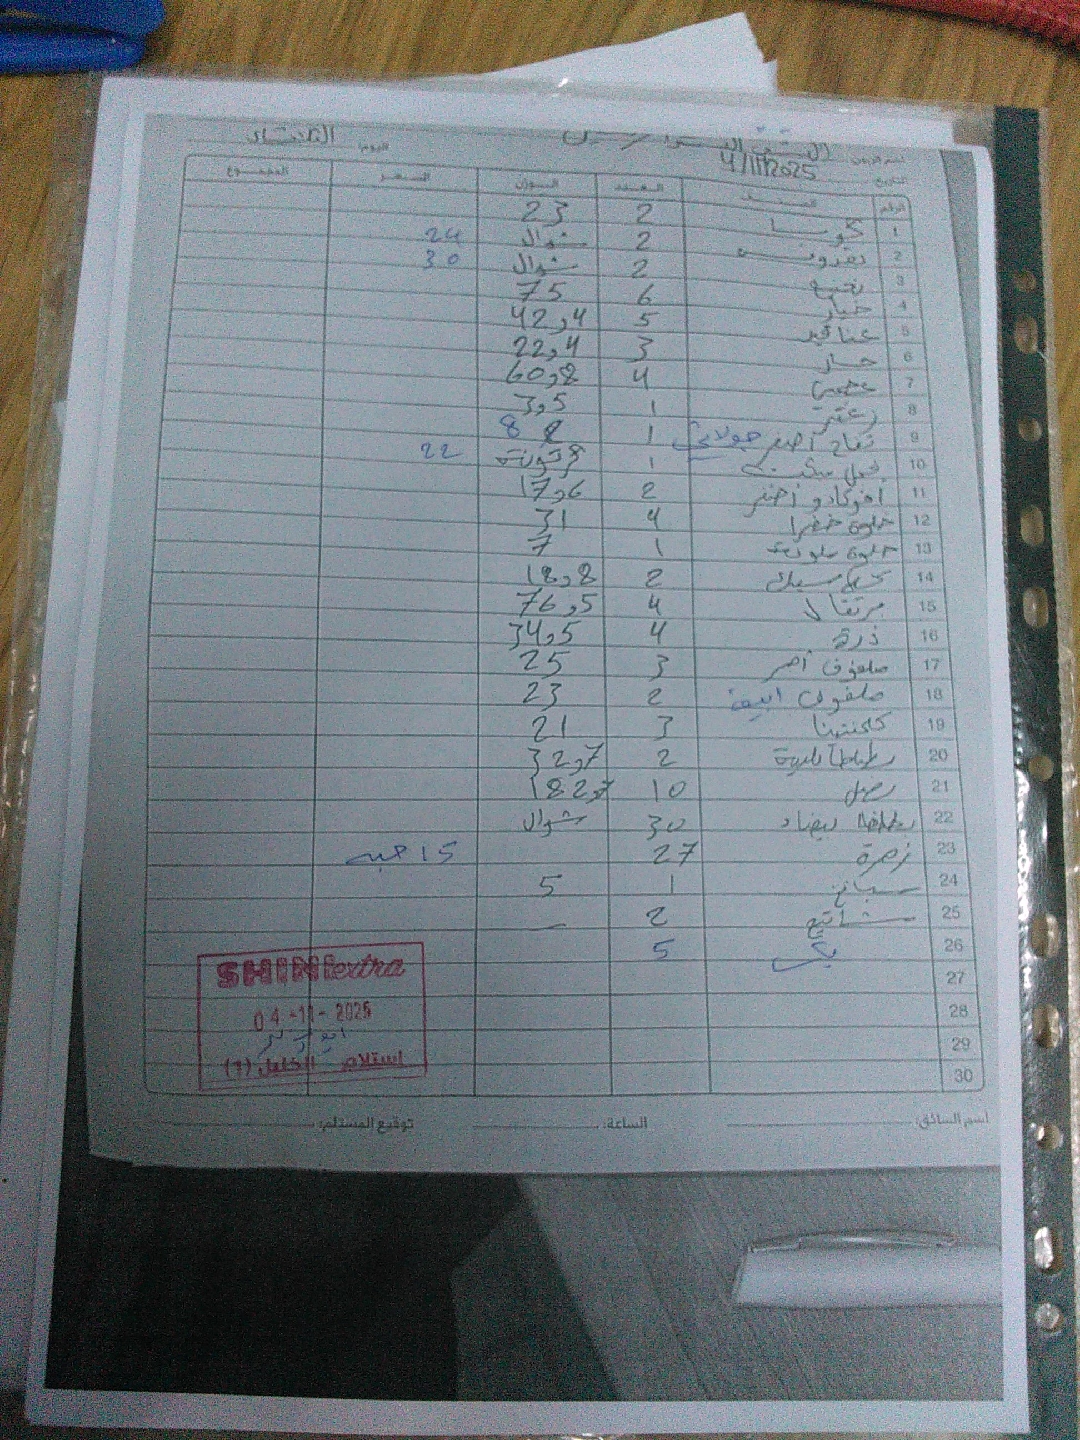 اسم الزبون: اليوم الثلاثاء
التاريخ 4/11/2025
الرقم الصنف العدد الوزن السعر المجموع
1 كوسا 2 23
2 بقدونس 2 شوال 24
3 نعنع 2 شوال 30
4 خيار 6 75
5 عناقيد 5 42,4
6 حار 3 22,4
7 4 60,8
8 زعتر 1 3,5
9 تفاح أصفر جولاني 1 8
10 فجل 1 كرتونة 22
11 افوكادو أخضر 2 17,6
12 حلوة خضرا 4 31
13 حلوة ملونة 1 7
14 2 18,8
15 برتقال 4 76,5
16 ذرة 4 34,5
17 ملفوف أحمر 3 25
18 ملفوف ابيض 2 23
19 كلمنتينا 3 21
20 بطاطا حلوة 2 32,7
21 بصل 10 182,7
22 بطاطا بيضاء 30 شوال
23 زهرة 27 15 حبه
24 سبانخ 1 5
25 2 —
26 5
27
28
29
30
SHINI extra
04-11-2025
استلام الخليل (1)
اسم السائق: الساعة: توقيع المستلم: